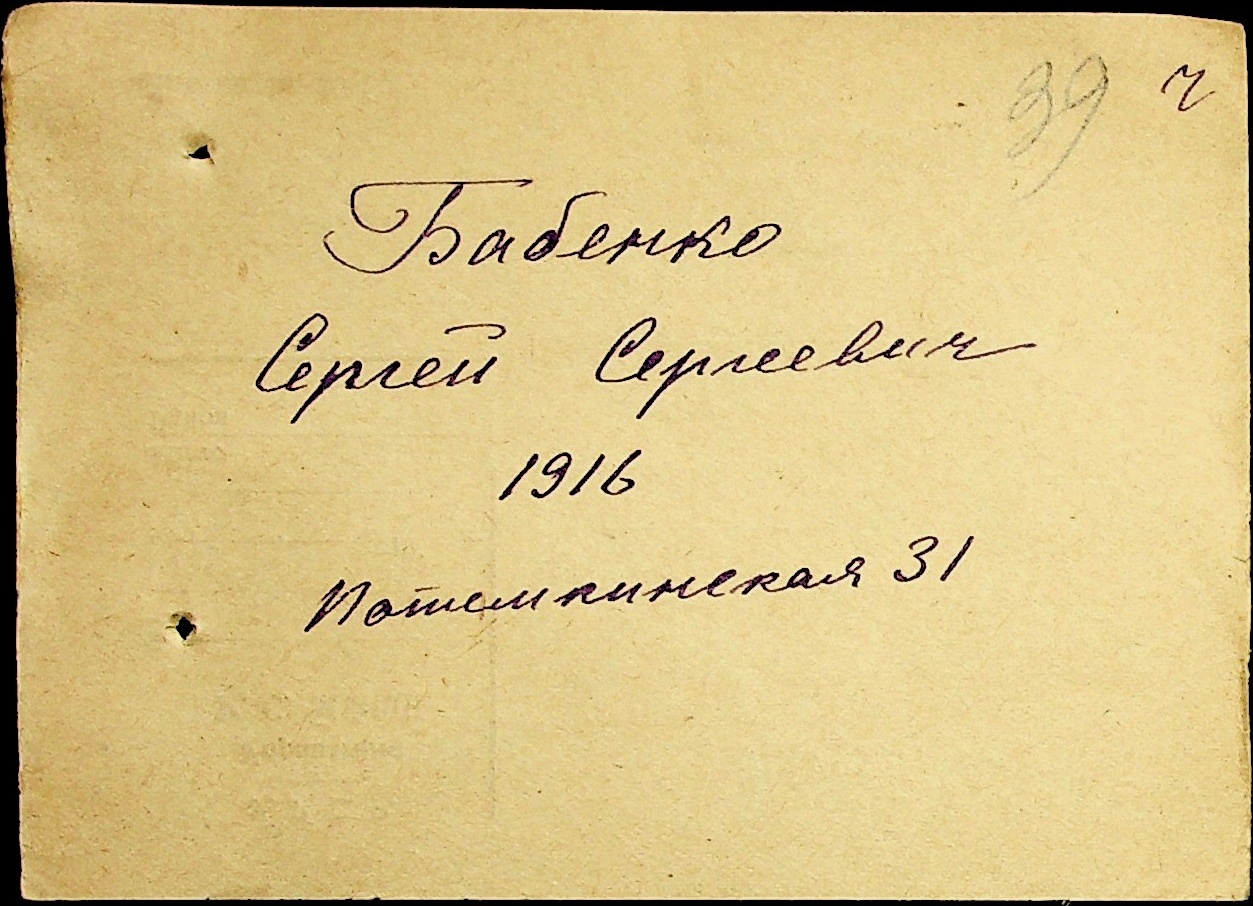 39 ч
Бабенко
Сергей Сергеевич
1916
Потемкинская 31